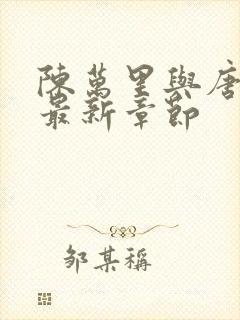 陳萬里與唐
最新章節
鄒某稱